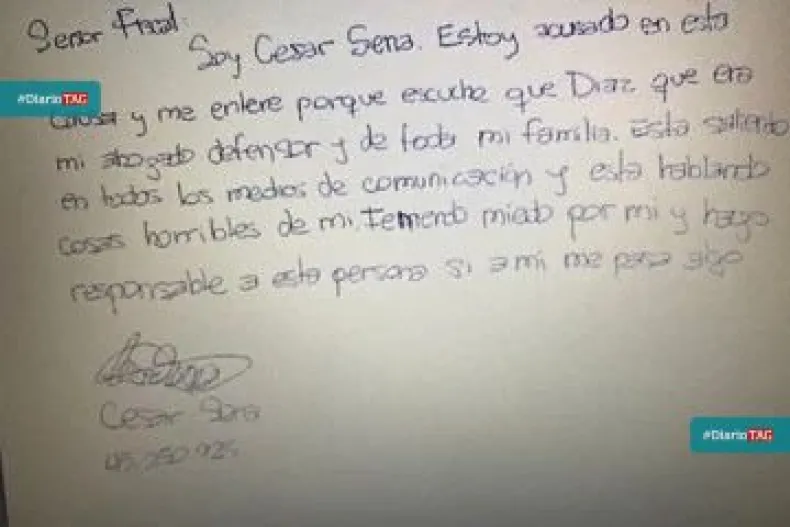 Señor Fiscal.
Soy Cesar Sena. Estoy acusado en esta
#DiarioTAG
causa y me entere porque escuche que Diaz que era
mi abogado defensor y de toda mi familia. Esta saliendo
en todos los medios de comunicación y esta hablando
cosas horribles de mi. Temendo miedo por mi y hago
responsable a esta persona si a mi me pasa algo
Cesar Sena
45.250.925
#DiarioTAG